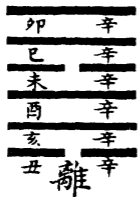 卯 辛
巳 辛
未 辛
酉 辛
亥 辛
丑 辛
離